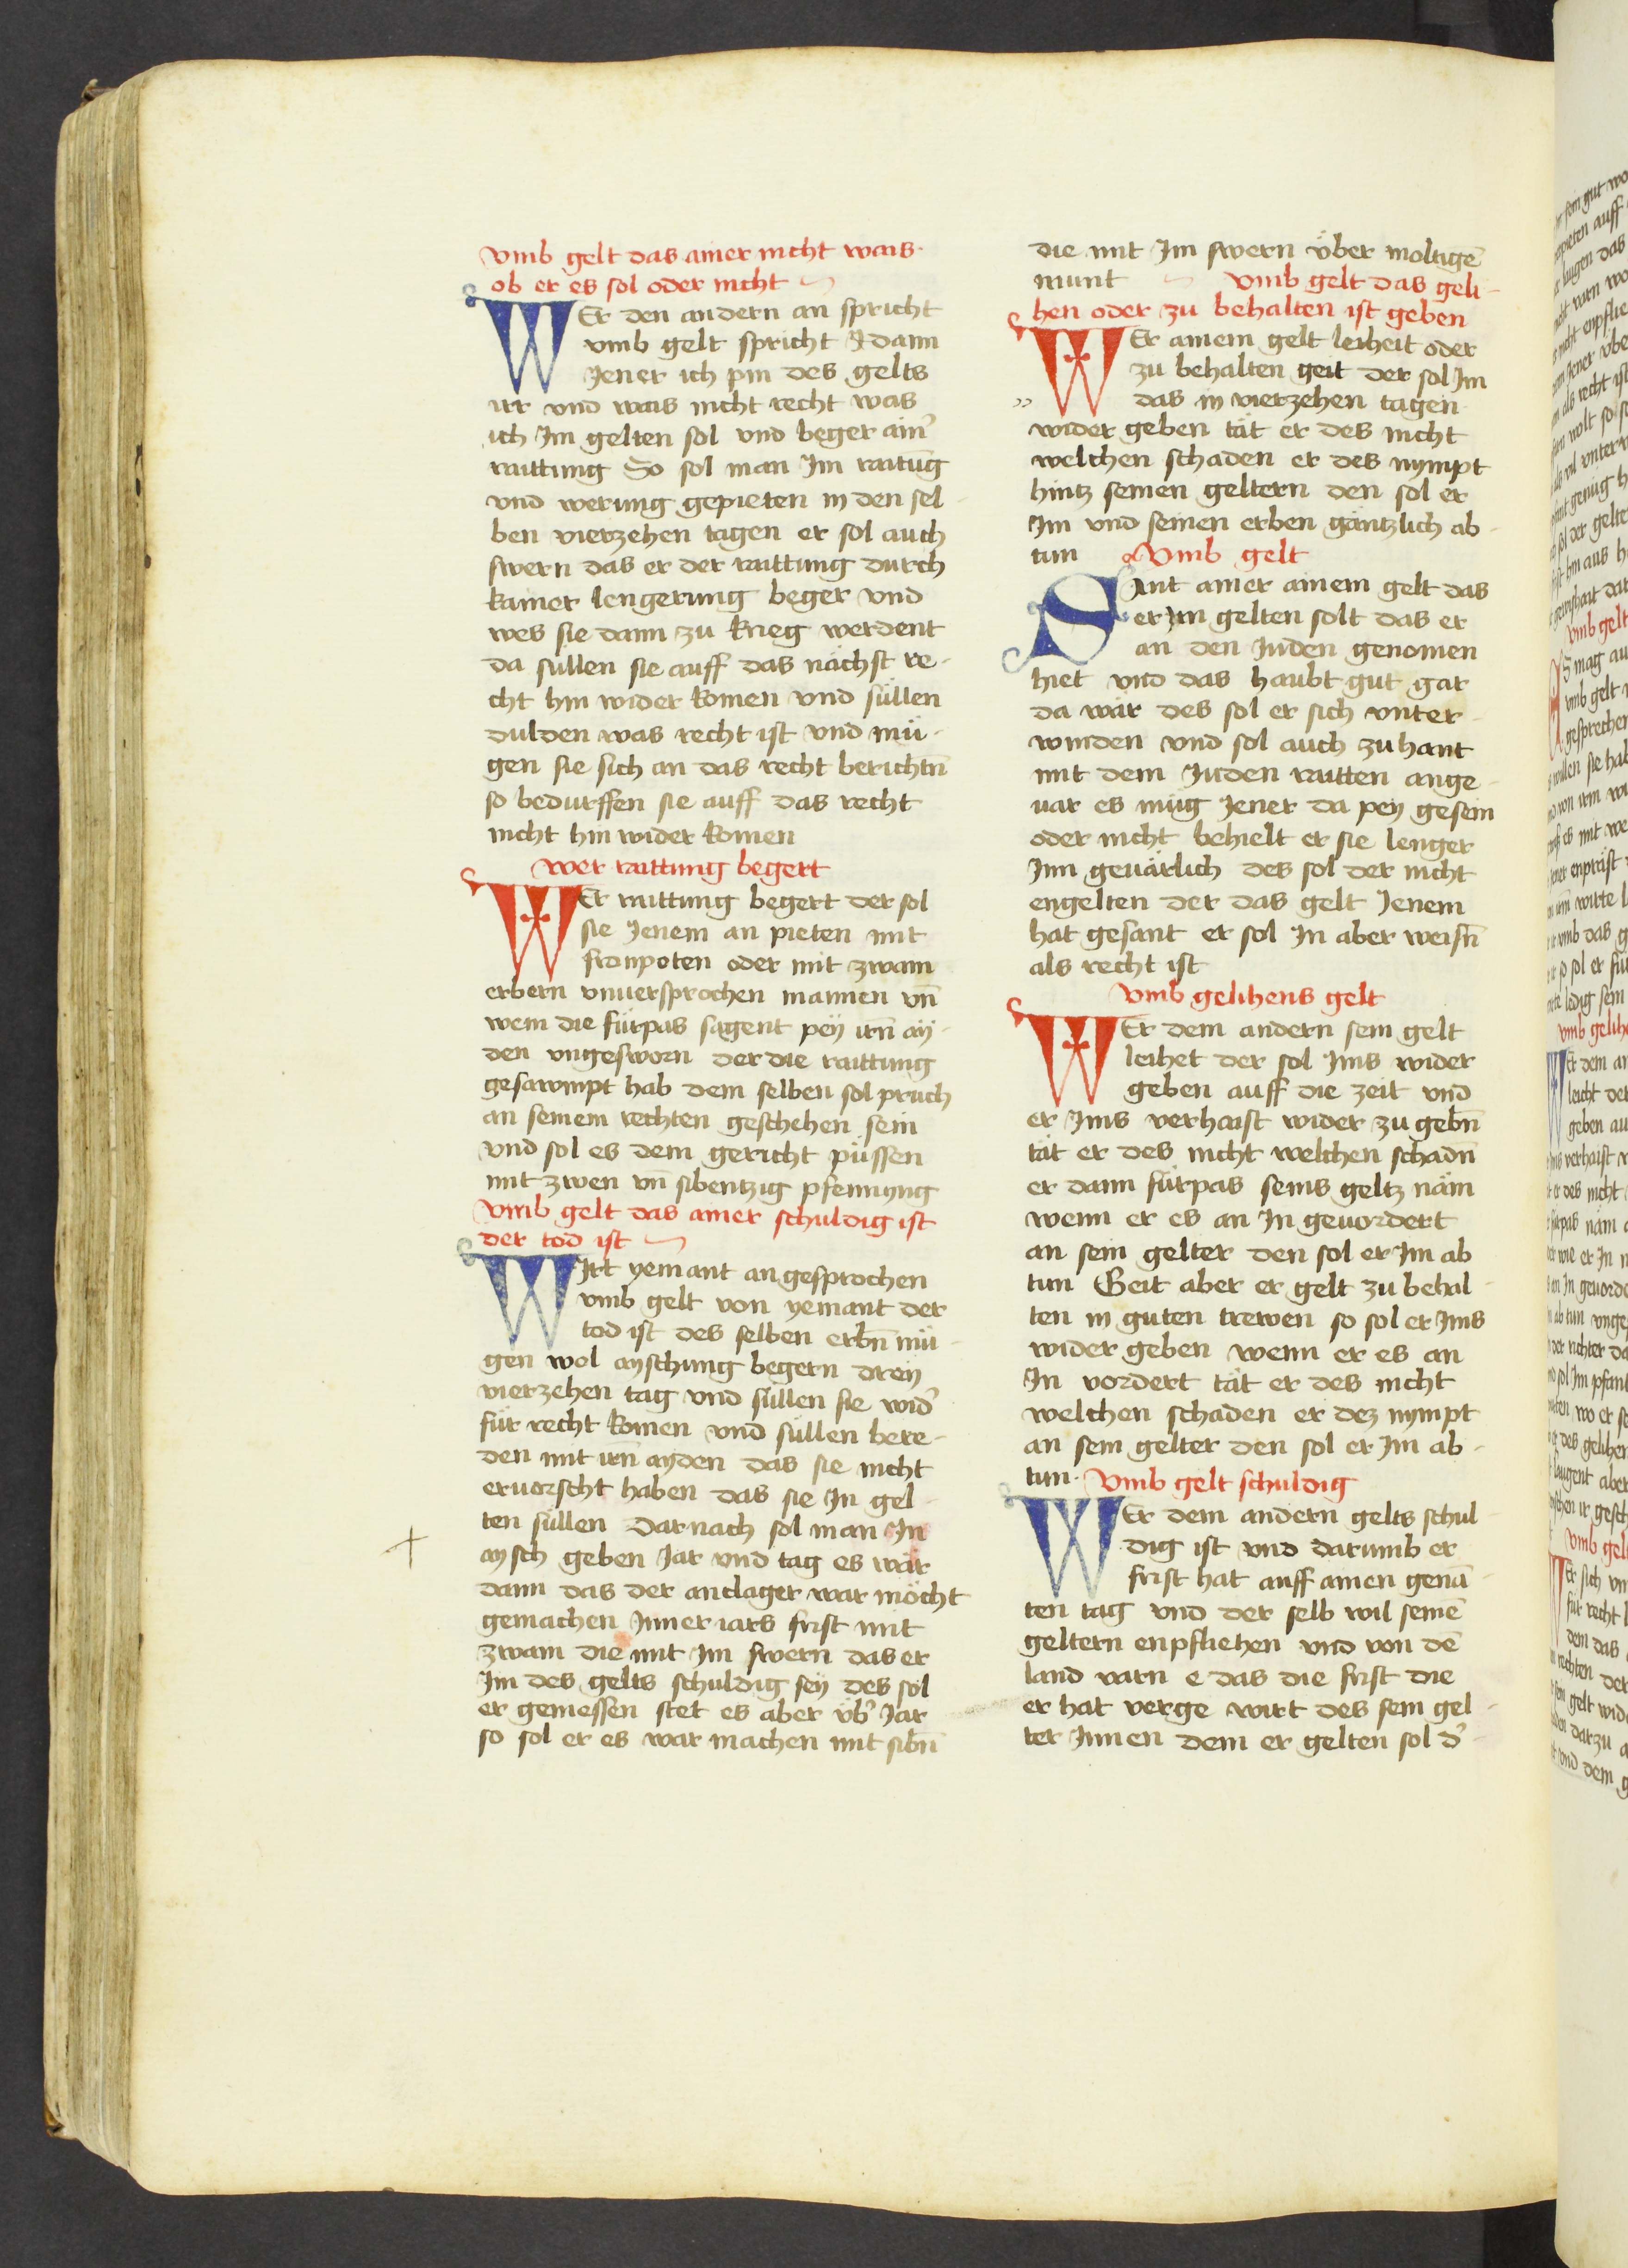 vmb gelt das ainer nicht wais
ob er es sol oder nicht
WEr den andern an spricht
vmb gelt spricht dann
Jener ich pin des gelts
irr vnd wais nicht recht was
ich Im gelten sol vnd beger ainr̾
raittung So sol man Im raitūg
vnd werung gepieten in den sel-
ben vierzehen tagen er sol auch
swern das er der raittung durch
kainer lengerung beger vnd
wes sie dann zu krieg werdent
da sullen sie auff das nächst re-
cht hin wider komen vnd süllen
dulden was recht ist vnd mü-
gen sie sich an das recht berichtn̄
so bedurffen sie auff das recht
nicht hin wider komen
wer raittung begert
WEr raittung begert der sol
sie Jenem an pieten mit
fronpoten oder mit zwain
erbern vnuersprochen mannen vn̄
wem die fürpas sagent pey irn̄ ay-
den vngesworn der die raittung
gesawmpt hab dem selben sol pruch
an seinem rechten geschehen sein
vnd sol es dem gericht püssen
mit zwen vn̄ sibentzig pfennyng
vmb gelt das ainer schuldig ist
der tod ist
WIrt yemant angesprochen
vmb gelt von yemant der
tod ist des selben erbn̄ mü-
gen wol ayschung begern drey
vierzehen tag vnd süllen sie wid̾
für recht komen vnd süllen bere-
den mit irn̄ ayden das sie nicht
eruorscht haben das sie In gel-
ten süllen Darnach sol man In
aysch geben Jar vnd tag es wär
dann das der anclager war möcht
gemachen Inner iars frist mit
zwain die mit Im swern das er
Im des gelts schuldig sey des sol
er geniessen stet es aber vb̾ Jar
so sol er es war machen mit sibn̄
die mit Im swern über moltigē
munt vmb gelt das geli-
hen oder zu behalten ist geben
WEr ainem gelt leiheit oder
zu behalten geit der sol Im
das in vierzehen tagen
wider geben tät er des nicht
welchen schaden er des nympt
hintz seinen geltern den sol er
Im vnd seinen erben gäntzlich ab-
tun Vmb gelt
SAnt ainer ainem gelt das
er im gelten solt das er
an den Juden genomen
hiet vnd das haubt gut gar
da wär des sol er sich vnter-
winden vnd sol auch zuhant
mit dem Juden raitten ange-
uar es müg Jener da pey gesein
oder nicht behielt er sie lenger
Inn geuärlich des sol der nicht
engelten der das gelt Jenem
hat gesant er sol In aber weisn̄
als recht ist
Vmb gelihens gelt
WEr dem andern sein gelt
leihet der sol Ims wider
geben auff die zeit vnd
er Ims verhaist wider zu gebn̄
tät er des nicht welchen schadn̄
er dann fürpas seins geltz näm
wenn er es an In geuordert
an sein gelter den sol er Im ab
tun Geit aber er gelt zu behal-
ten in guten trewen so sol er Ims
wider geben wenn er es an
In vordert tät er des nicht
welchen schaden er dez nympt
an sein gelter den sol er Im ab-
tun. Vmb gelt schuldig
WEr dem andern gelts schul-
dig ist vnd darumb er
frist hat auff ainen genā-
ten tag vnd der selb wil seinē
geltern enpfliehen vnd von dē
land varn e das die frist die
er hat verge wirt des sein gel-
ter Innen dem er gelten sol d̾